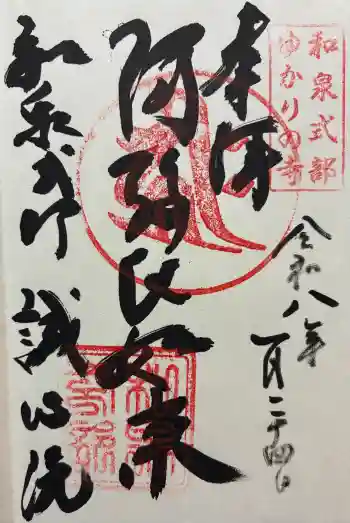 和泉式部
ゆかりの寺
奉拝
令和八年
一月二十四日
阿弥陀如来
和泉式部
誠心院